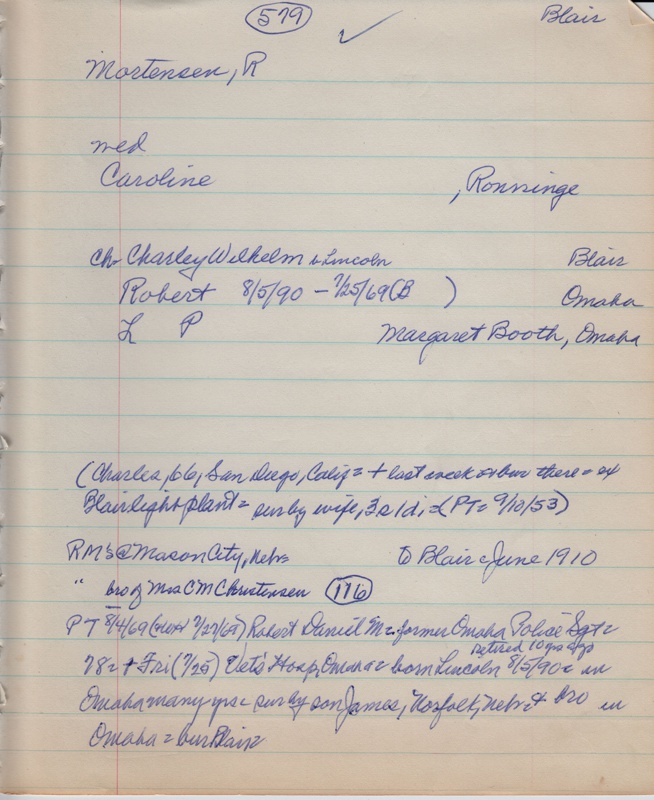 579 Blair
Mortensen, R
med
Caroline , Ronninge
ch Charley Wilhelm b Lincoln Blair
Robert 8/5/90 - 7/25/69 (B ) Omaha
L P Margaret Booth, Omaha
(Charles, 66, San Diego, Calif = + last week + bur there = ex
Blair light plant = sur by wife, 3s 1d, = (PT = 9/10/53)
RM's @ Mason City, Nebr to Blair c June 1910
" bro of Mrs CM Christensen 116
PT 8/4/69 7/27/69) Robert Daniel M = former Omaha Police Sgt =
retired 10 yrs ago
78 = + Fri (7/25) Vet's Hosp, Omaha = born Lincoln 8/5/90 = in
Omaha many yrs = sur by son James, Norfolk, Nebr + bro in
Omaha = bur Blair =